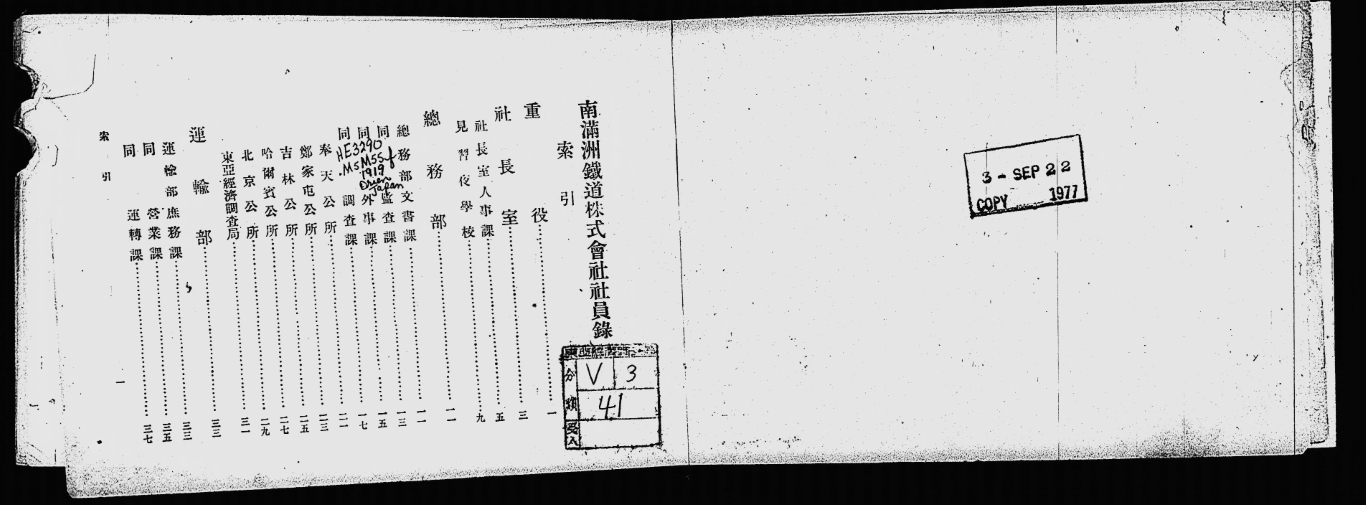 南滿洲鐵道株式會社社員錄
索引
重役…………一
社長室…………三
社長室人事課…………五
見習夜學校…………九
總務部…………一一
總務部文書課…………一一
同 監査課…………一三
同 外事課…………一五
同 調査課…………一七
奉天公所…………二一
鄭家屯公所…………二三
吉林公所…………二五
哈爾賓公所…………二七
北京公所…………二九
東亞經濟調査局…………三一
運輸部…………三三
運輸部庶務課…………三三
同 營業課…………三五
同 運轉課…………三七
索引
一
HE3290
1919
Orien
Japan
分類
V 3
41
受入
3 - SEP 22
COPY 1977